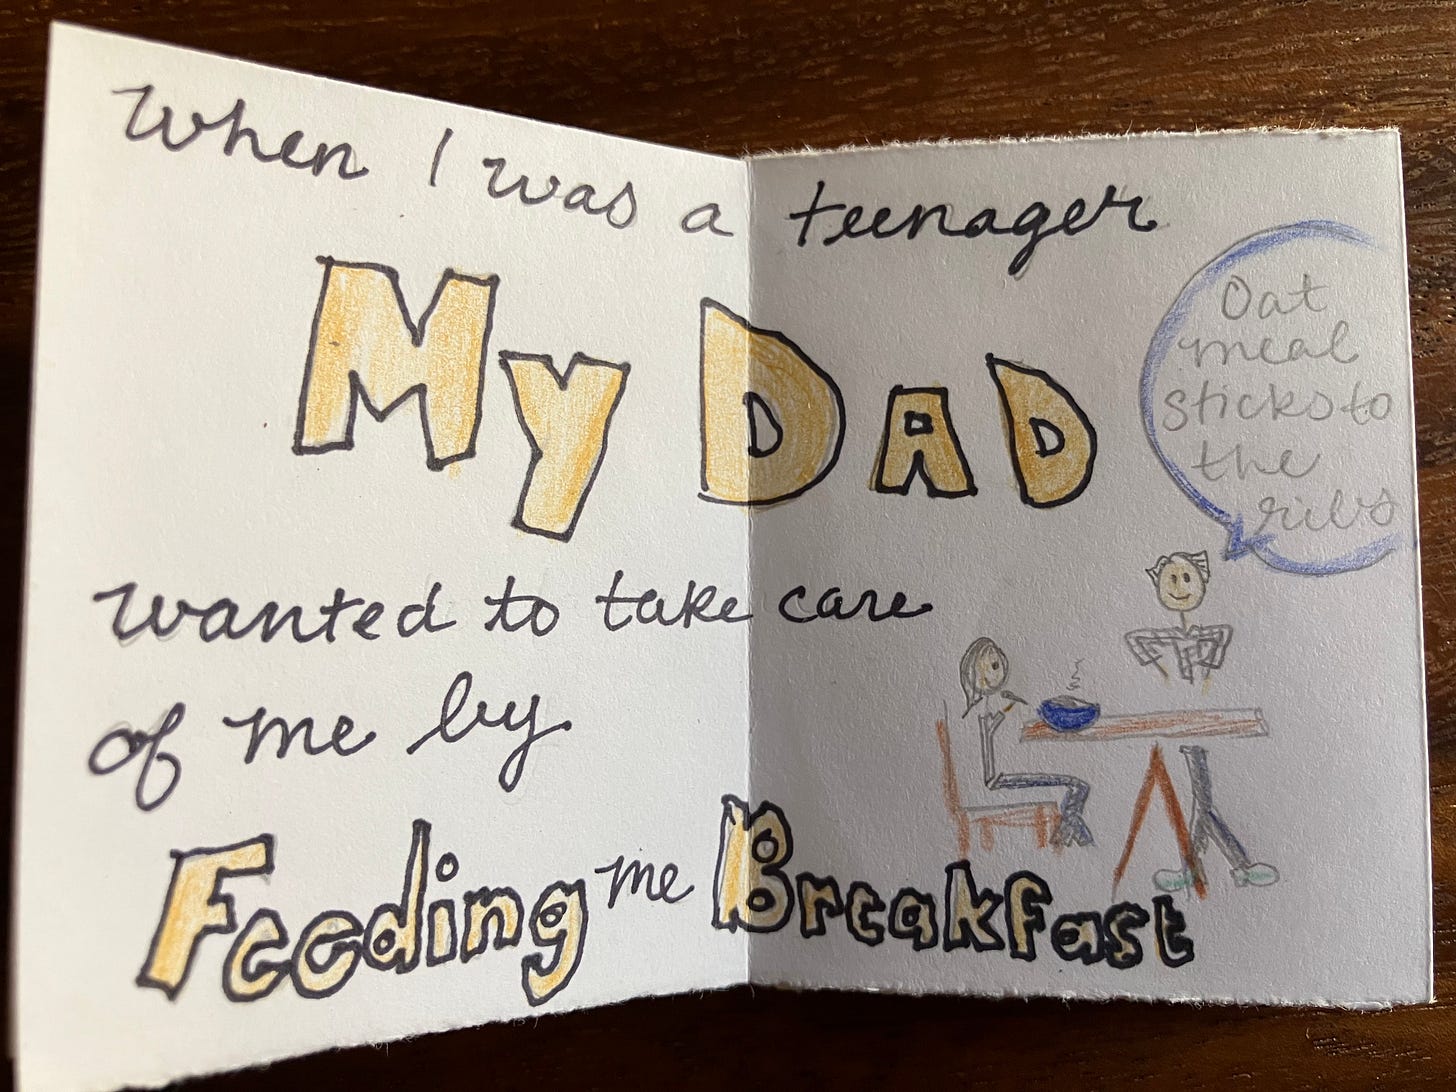 When I was a teenager
My DAD
wanted to take care
of me by
Feeding me Breakfast
Oat
meal
sticks to
the
ribs